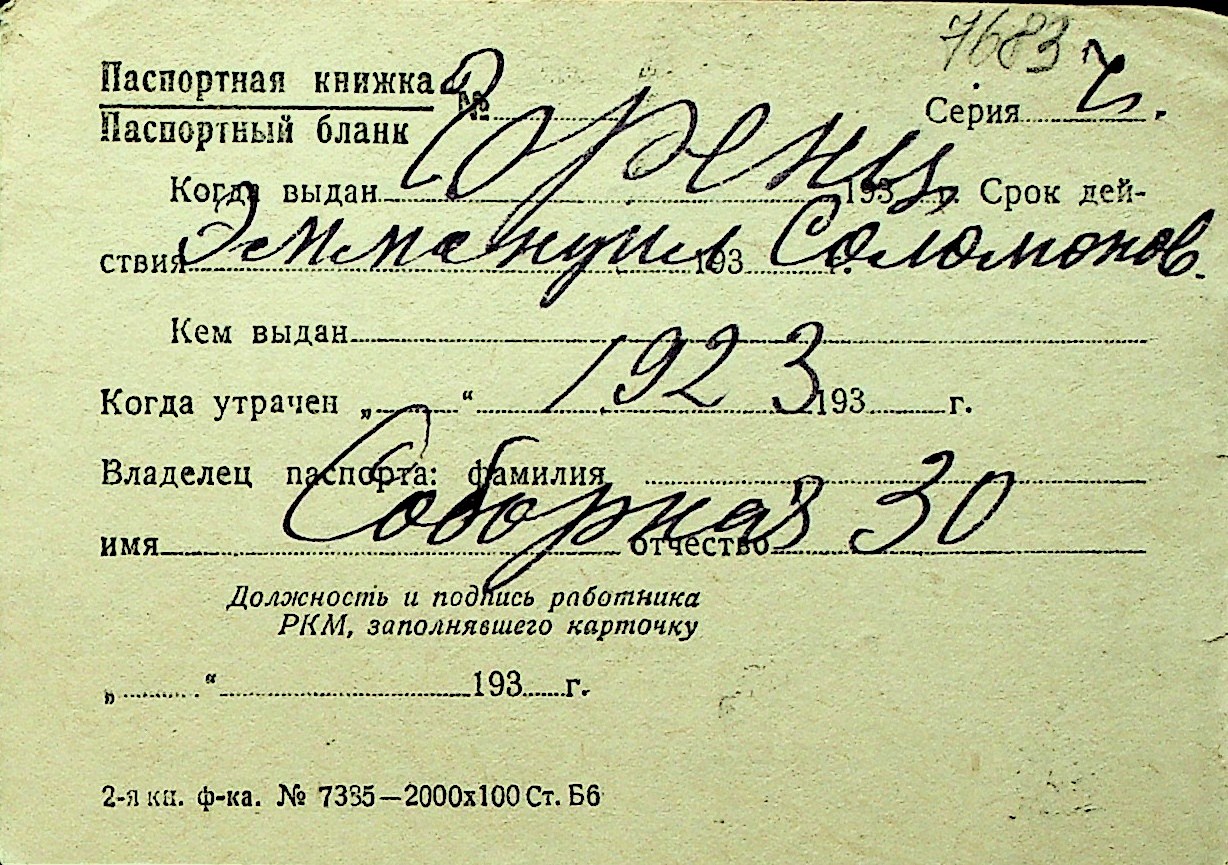 7683
Паспортная книжка
Паспортный бланк
№ Серия
Горенц
Когда выдан 193 г. Срок дей-
ствия 193 г.
Эммануил Соломонов.
Кем выдан
1923
Когда утрачен „ “ 193 г.
Владелец паспорта: фамилия
Соборная 30
имя отчество
Должность и подпись работника
РКМ, заполнявшего карточку
„ “ 193 г.
2-я кн. ф-ка. № 7385—2000х100 Ст. Б6